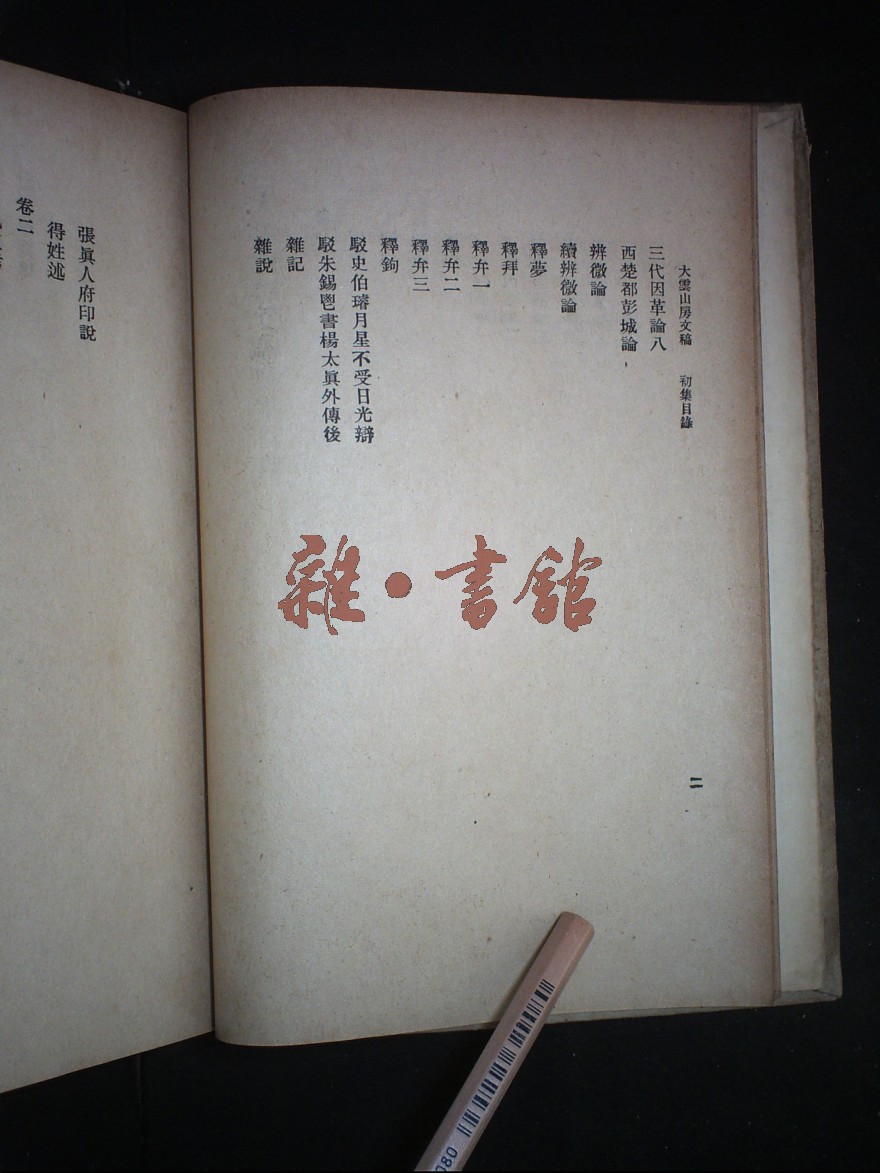 大雲山房文稿 初集目錄
三代因革論八
西楚都彭城論
辨微論
續辨微論
釋夢
釋拜
釋弁一
釋弁二
釋弁三
釋鉤
駁史伯璿月星不受日光辯
駁朱錫鬯書楊太眞外傳後
雜記
雜說
二
張眞人府印說
得姓述
卷二
雜·書館
080